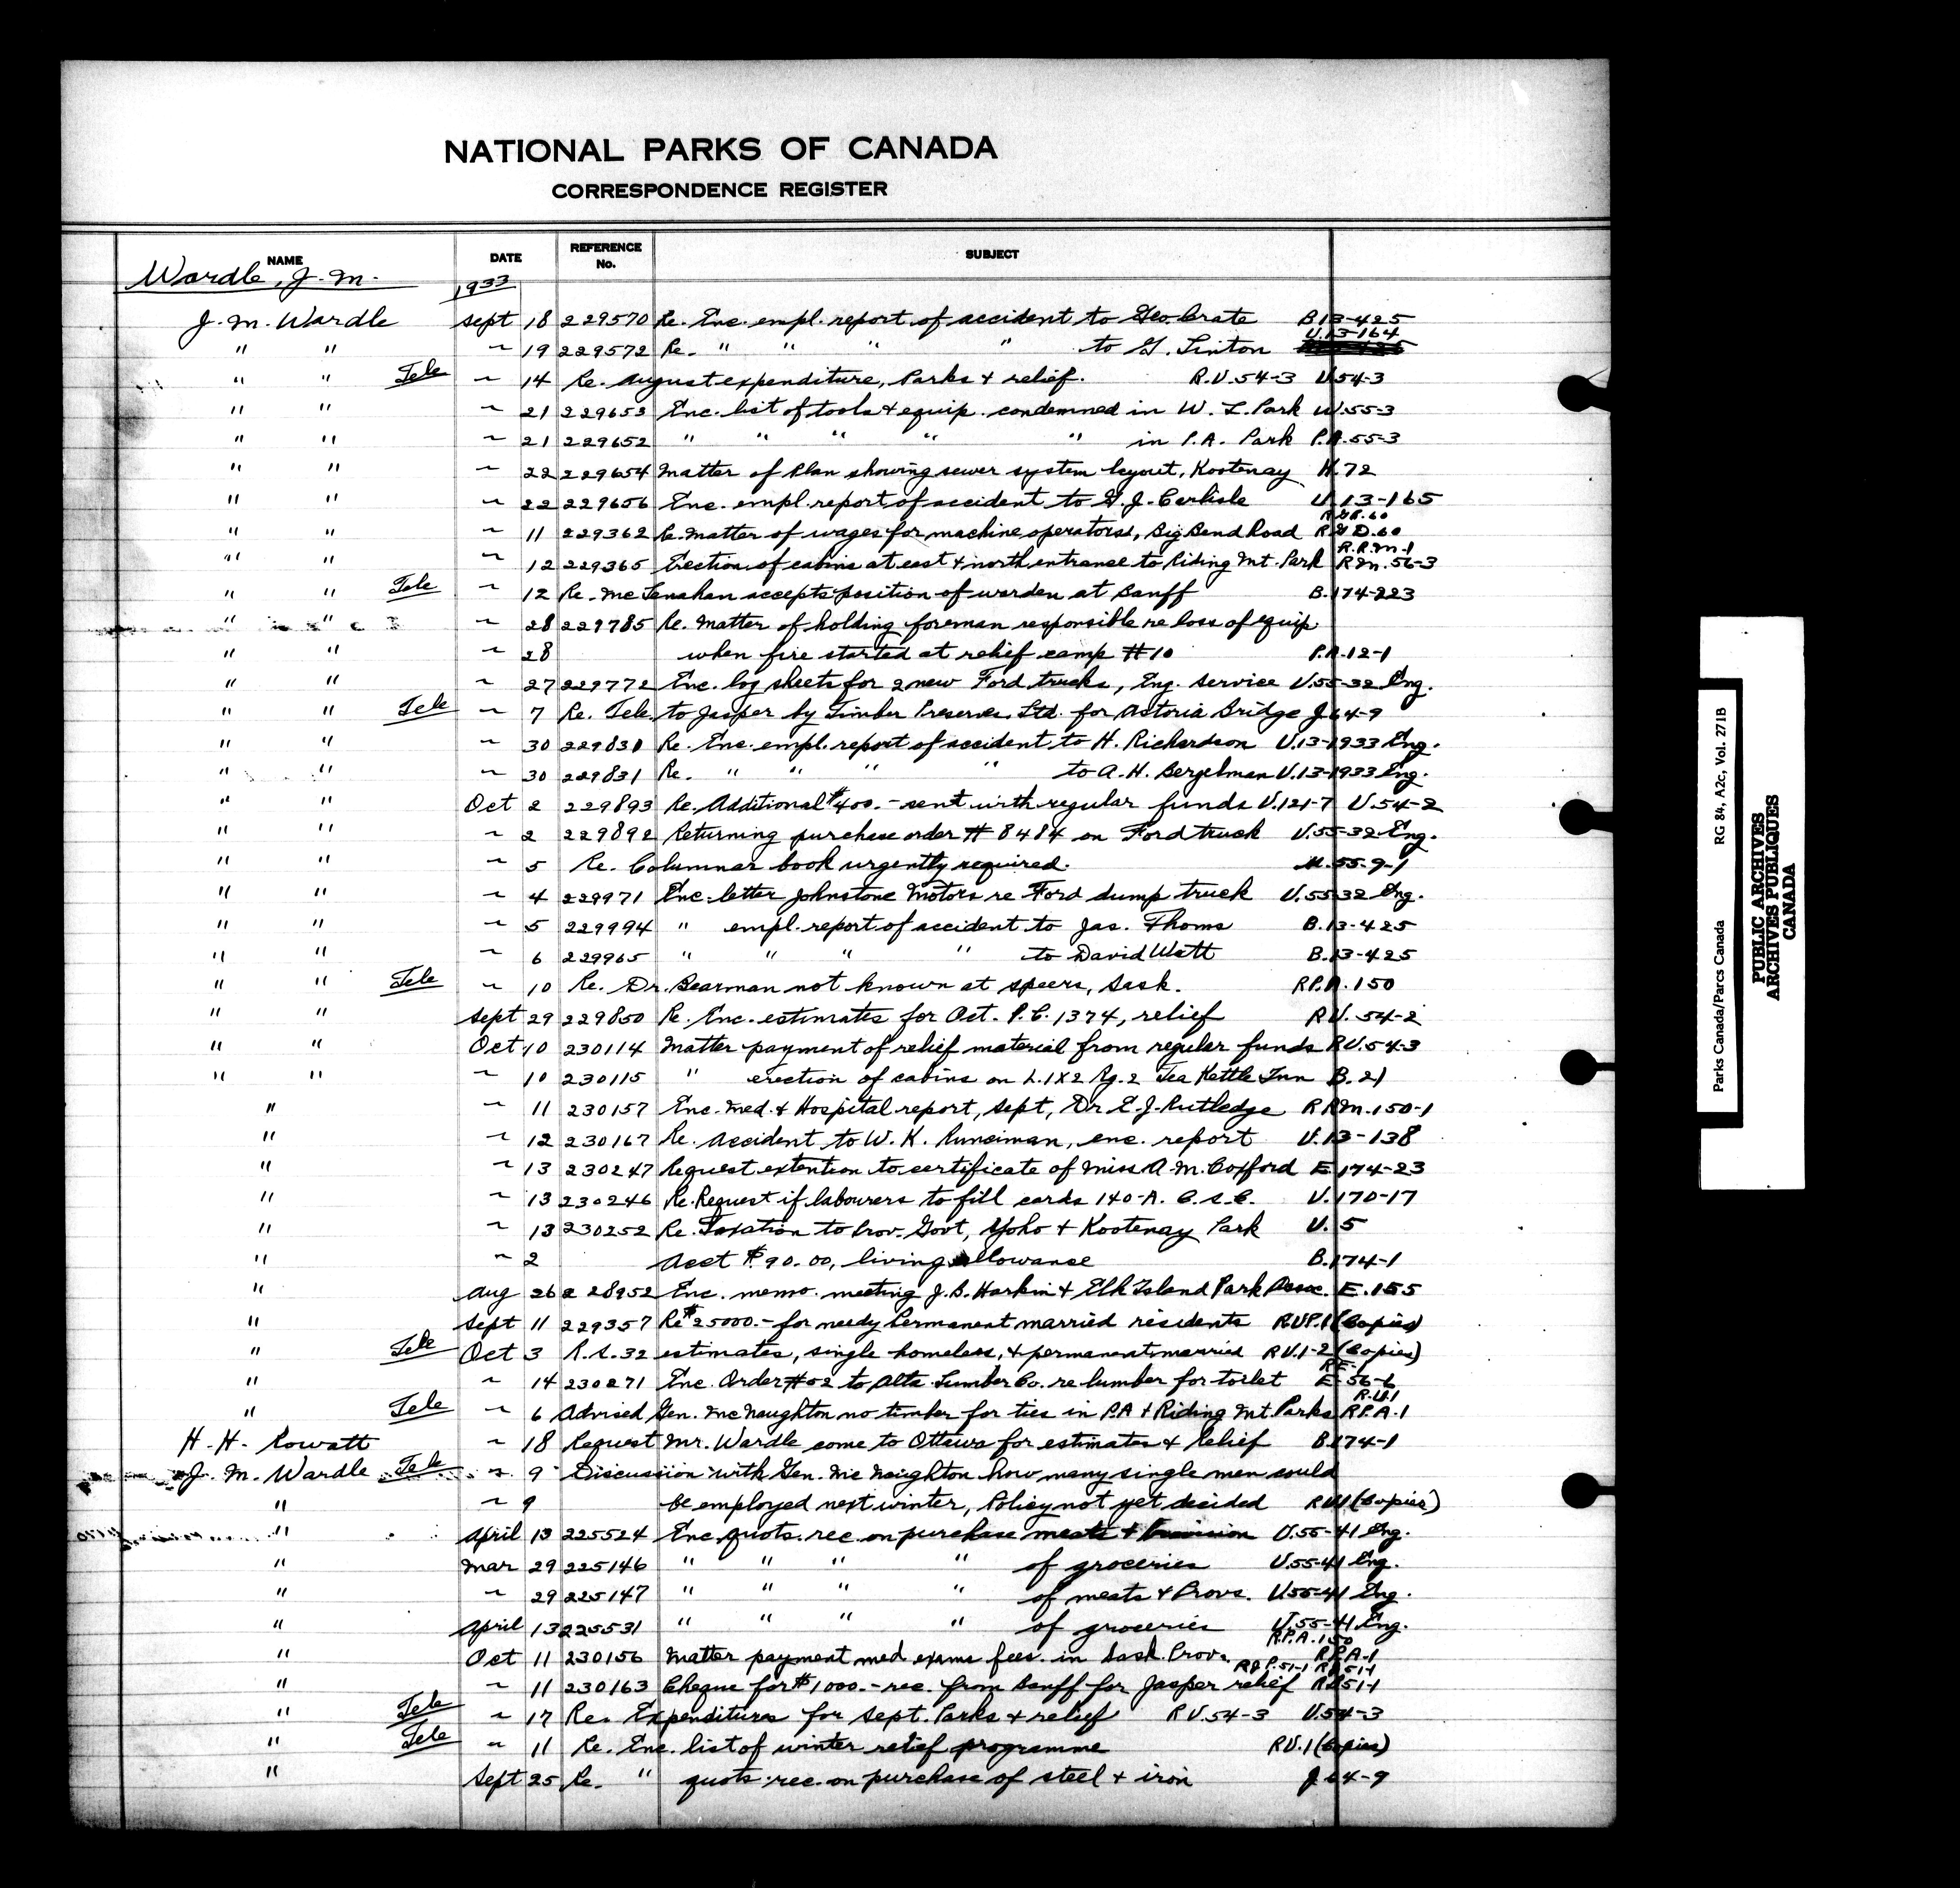 NATIONAL PARKS OF CANADA
CORRESPONDENCE REGISTER
NAME DATE REFERENCE No. SUBJECT
Wardle, J. M. 1933
J. M. Wardle Sept 18 229570 Re. Enc. empl. report of accident to Geo. Crate B.13-425
" " ~ 19 229572 Re. " " " " to G. Linton U.13-164
" " Tele ~ 14 Re. August expenditure, Parks & relief. R.U.54-3 U.54-3
" " ~ 21 229653 Enc. list of tools & equip. condemned in W. L. Park W.55-3
" " ~ 21 229652 " " " " " in P.A. Park P.A.55-3
" " ~ 22 229654 Matter of Plan showing sewer system layout, Kootenay K.72
" " ~ 22 229656 Enc. empl. report of accident to G. J. Carlisle U.13-165
" " ~ 11 229362 Re. Matter of wages for machine operators, Big Bend Road R.G.D.60
" " ~ 12 229365 Erection of cabins at east & north entrance to Riding Mt. Park R.R.M-1 R.M.56-3
" " Tele ~ 12 Re. McLenahan accepts position of warden at Banff B.174-223
" " ~ 28 229785 Re. Matter of holding foreman responsible re loss of equip
" " ~ 28 when fire started at relief camp #10 P.A.12-1
" " ~ 27 229772 Enc. log sheets for 2 new Ford trucks, Eng. Service U.55-32 Eng.
" " Tele ~ 7 Re. Tele to Jasper by Timber Preserves Ltd. for Astoria Bridge J.64-9
" " ~ 30 229830 Re. Enc. empl. report of accident to H. Richardson U.13-1933 Eng.
" " ~ 30 229831 Re. " " " " to A. H. Bergelman U.13-1933 Eng.
" " Oct 2 229893 Re. Additional $400.- sent with regular funds U.121-7 U.54-2
" " ~ 2 229892 Returning purchase order # 8484 on Ford truck U.55-32 Eng.
" " ~ 5 Re. Columnar book urgently required. U.55-9-1
" " ~ 4 229971 Enc. letter Johnstone Motors re Ford dump truck U.55-32 Eng.
" " ~ 5 229994 " empl. report of accident to Jas. Thoms B.13-425
" " ~ 6 229965 " " " " to David Watt B.13-425
" " Tele ~ 10 Re. Dr. Bearman not known at Speers, Sask. R.P.A.150
" " Sept 29 229850 Re. Enc. estimates for Oct. P.C. 1374, relief R.U.54-2
" " Oct 10 230114 Matter payment of relief material from regular funds R.U.54-3
" " ~ 10 230115 " erection of cabins on L.1X2 Rg.2 Tea Kettle Inn B.21
" ~ 11 230157 Enc. Med. & Hospital report, Sept, Dr. E. J. Rutledge R.R.M.150-1
" ~ 12 230167 Re. Accident to W. K. Runciman, enc. report U.13-138
" ~ 13 230247 Request extention to certificate of Miss A. M. Coxford E.174-23
" ~ 13 230246 Re. Request if labourers to fill cards 140-A. C.S.C. U.170-17
" ~ 13 230252 Re. Taxation to Prov. Govt, Yoho & Kootenay Park U.5
" ~ 2 Acct $90.00, living allowance B.174-1
" Aug 26 228952 Enc. memo. meeting J. B. Harkin & Elk Island Park Assoc. E.155
" Sept 11 229357 Re $25000.- for needy permanent married residents R.U.P.1 (Copies)
" Tele Oct 3 R.S.32 estimates, single homeless, & permanent married R.U.1-2 (Copies)
" ~ 14 230271 Enc. Order #02 to Alta. Lumber Co. re lumber for toilet R.E-1 E-56-6
" Tele ~ 6 Advised Gen. McNaughton no timber for ties in P.A & Riding Mt. Parks R.U.1 R.P.A-1
H. H. Rowatt ~ 18 Request Mr. Wardle come to Ottawa for estimates & Relief B.174-1
J. M. Wardle Tele ~ 9 Discussion with Gen. McNaughton how many single men could
" ~ 9 be employed next winter, Policy not yet decided R.U.1 (Copies)
" April 13 225524 Enc. quots. rec. on purchase meats & Provision U.55-41 Eng.
" Mar 29 225146 " " " " of groceries U.55-41 Eng.
" ~ 29 225147 " " " " of meats & Provs. U.55-41 Eng.
" April 13 225531 " " " " of groceries U.55-41 Eng.
" Oct 11 230156 Matter payment med exams fees. in Sask. Prov. R.P.A.150 R.P.A-1
" ~ 11 230163 Cheque for $1000.- rec. from Banff for Jasper relief
" Tele ~ 17 Re. Expenditures for Sept. Parks & relief R.U.54-3 U.54-3
" Tele ~ 11 Re. Enc. list of winter relief programme R.U.1 (Copies)
" Sept 25 Re. " quots. rec. on purchase of steel & iron J.64-9
Parks Canada/Parcs Canada RG 84, A2c, Vol. 271B
PUBLIC ARCHIVES
ARCHIVES PUBLIQUES
CANADA